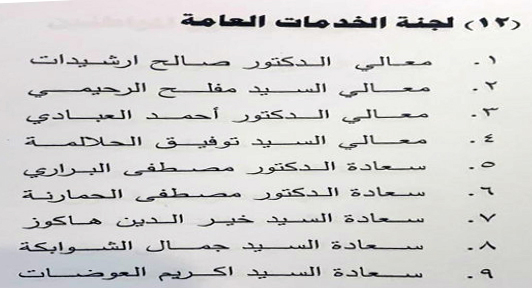 (١٢) لجنة الخدمات العامة
١- معالي الدكتور صالح ارشيدات
٢- معالي السيد مفلح الرحيمي
٣- معالي الدكتور أحمد العبادي
٤- معالي السيد توفيق الحلالمة
٥- سعادة الدكتور مصطفى البراري
٦- سعادة الدكتور مصطفى الحمارنة
٧- سعادة السيد خير الدين هاكوز
٨- سعادة السيد جمال الشوابكة
٩- سعادة السيد اكريم العوضات